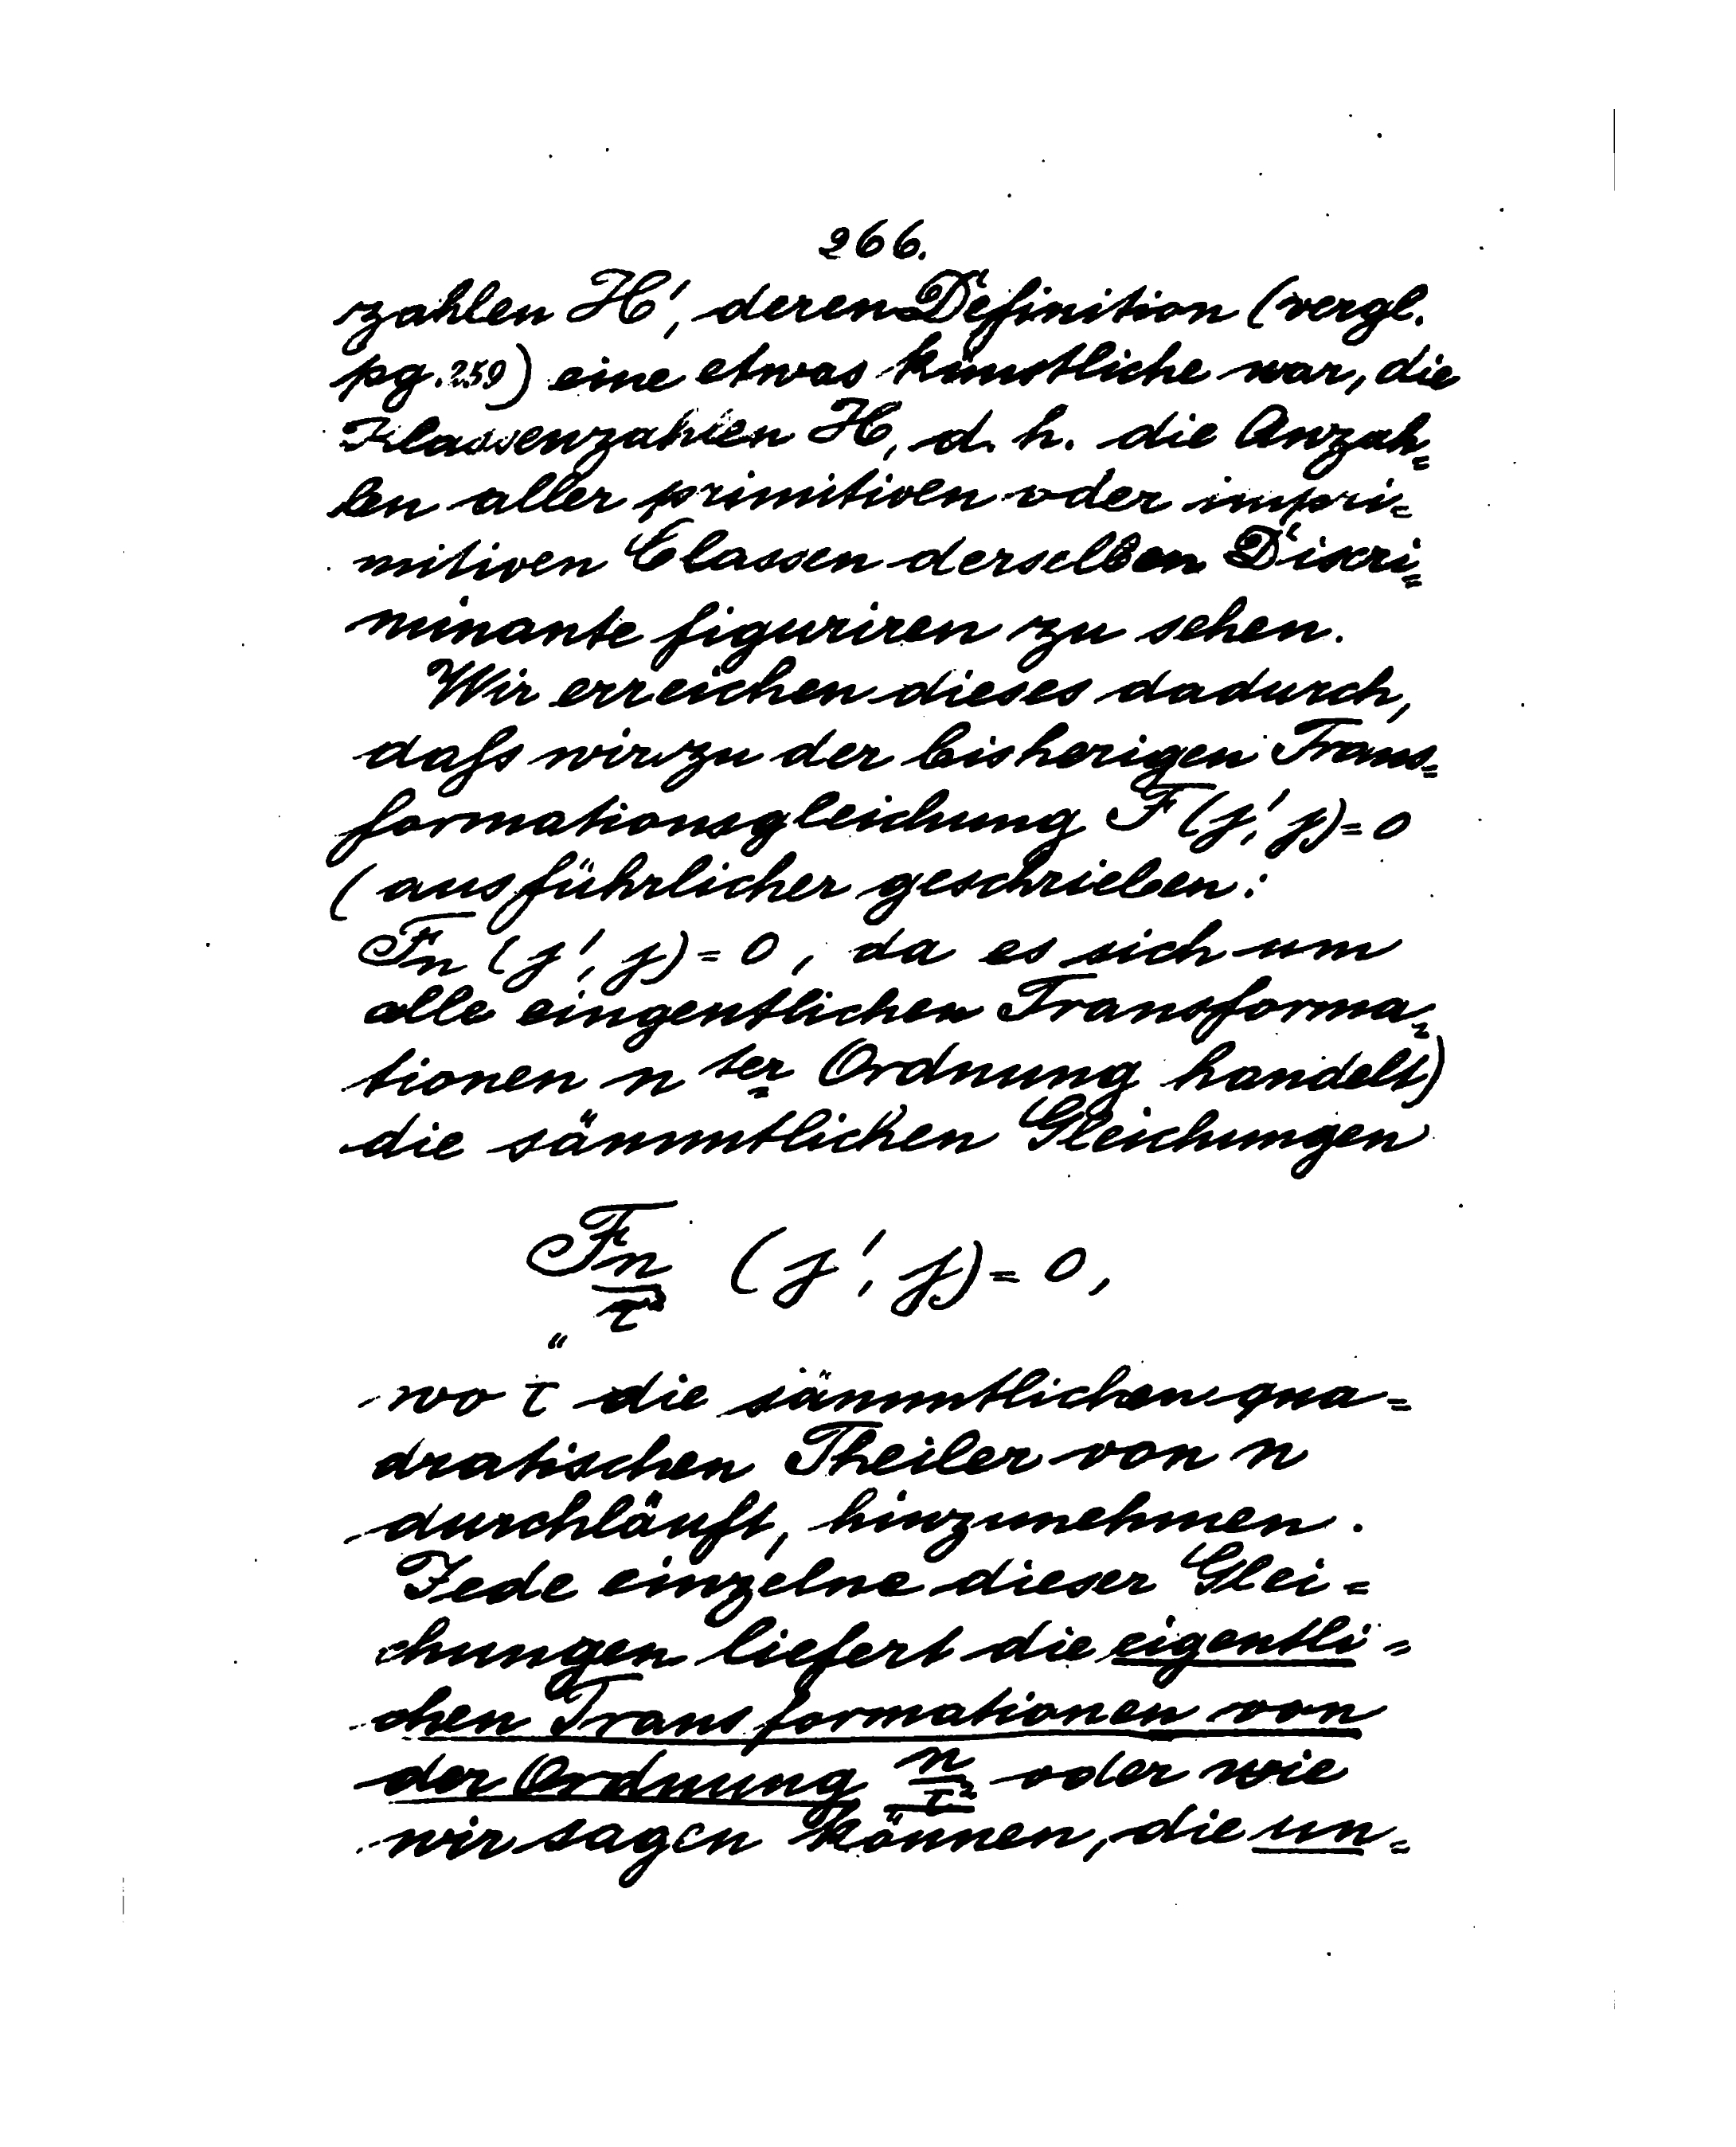 266.
zahlen H', deren Definition (vergl.
pg. 259) eine etwas künstliche war, die
Klassenzahlen H, d. h. die Anzah=
len aller primitiven oder impri=
mitiven Classen derselben Discri=
minante figuriren zu sehen.
Wir erreichen dieses dadurch,
daſs wir zu der bisherigen Trans=
formationsgleichung F (j', j) = 0
(ausführlicher geschrieben:
Fn (j', j) = 0, da es sich um
alle eingentlichen Transforma=
tionen n ter Ordnung handelt)
die sämmtlichen Gleichungen
F n/τ² (j', j) = 0,
wo τ die sämmtlichen qua=
dratischen Theiler von n
durchläuft, hinzunehmen.
Jede einzelne dieser Glei=
chungen liefert die eigentli=
chen Transformationen von
der Ordnung n/τ² oder wie
wir sagen können, die un=